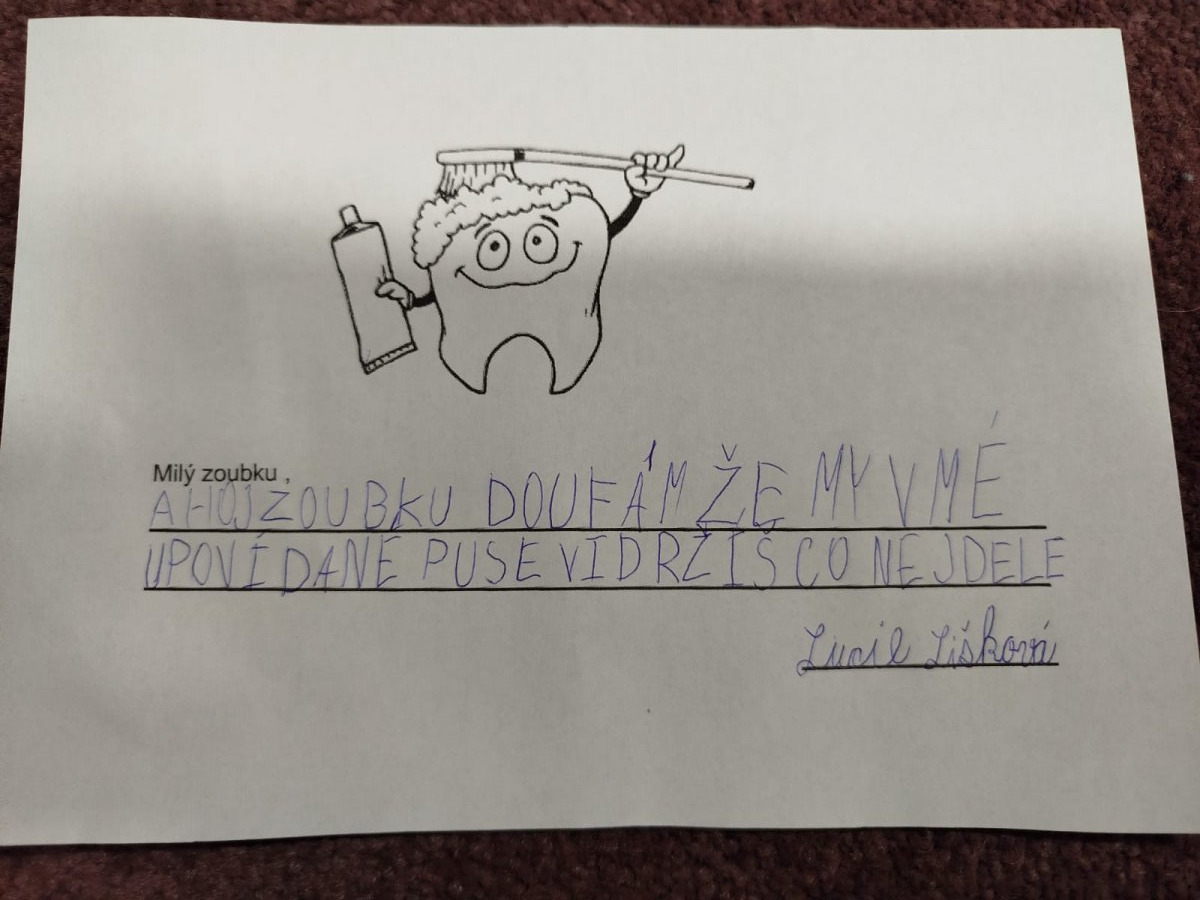 Milý zoubku ,
AHOJ ZOUBKU DOUFÁM ŽE MY V MÉ
UPOVÍDANÉ PUSE VIDRŽÍŠ CO NEJDELE
Lucie Lišková